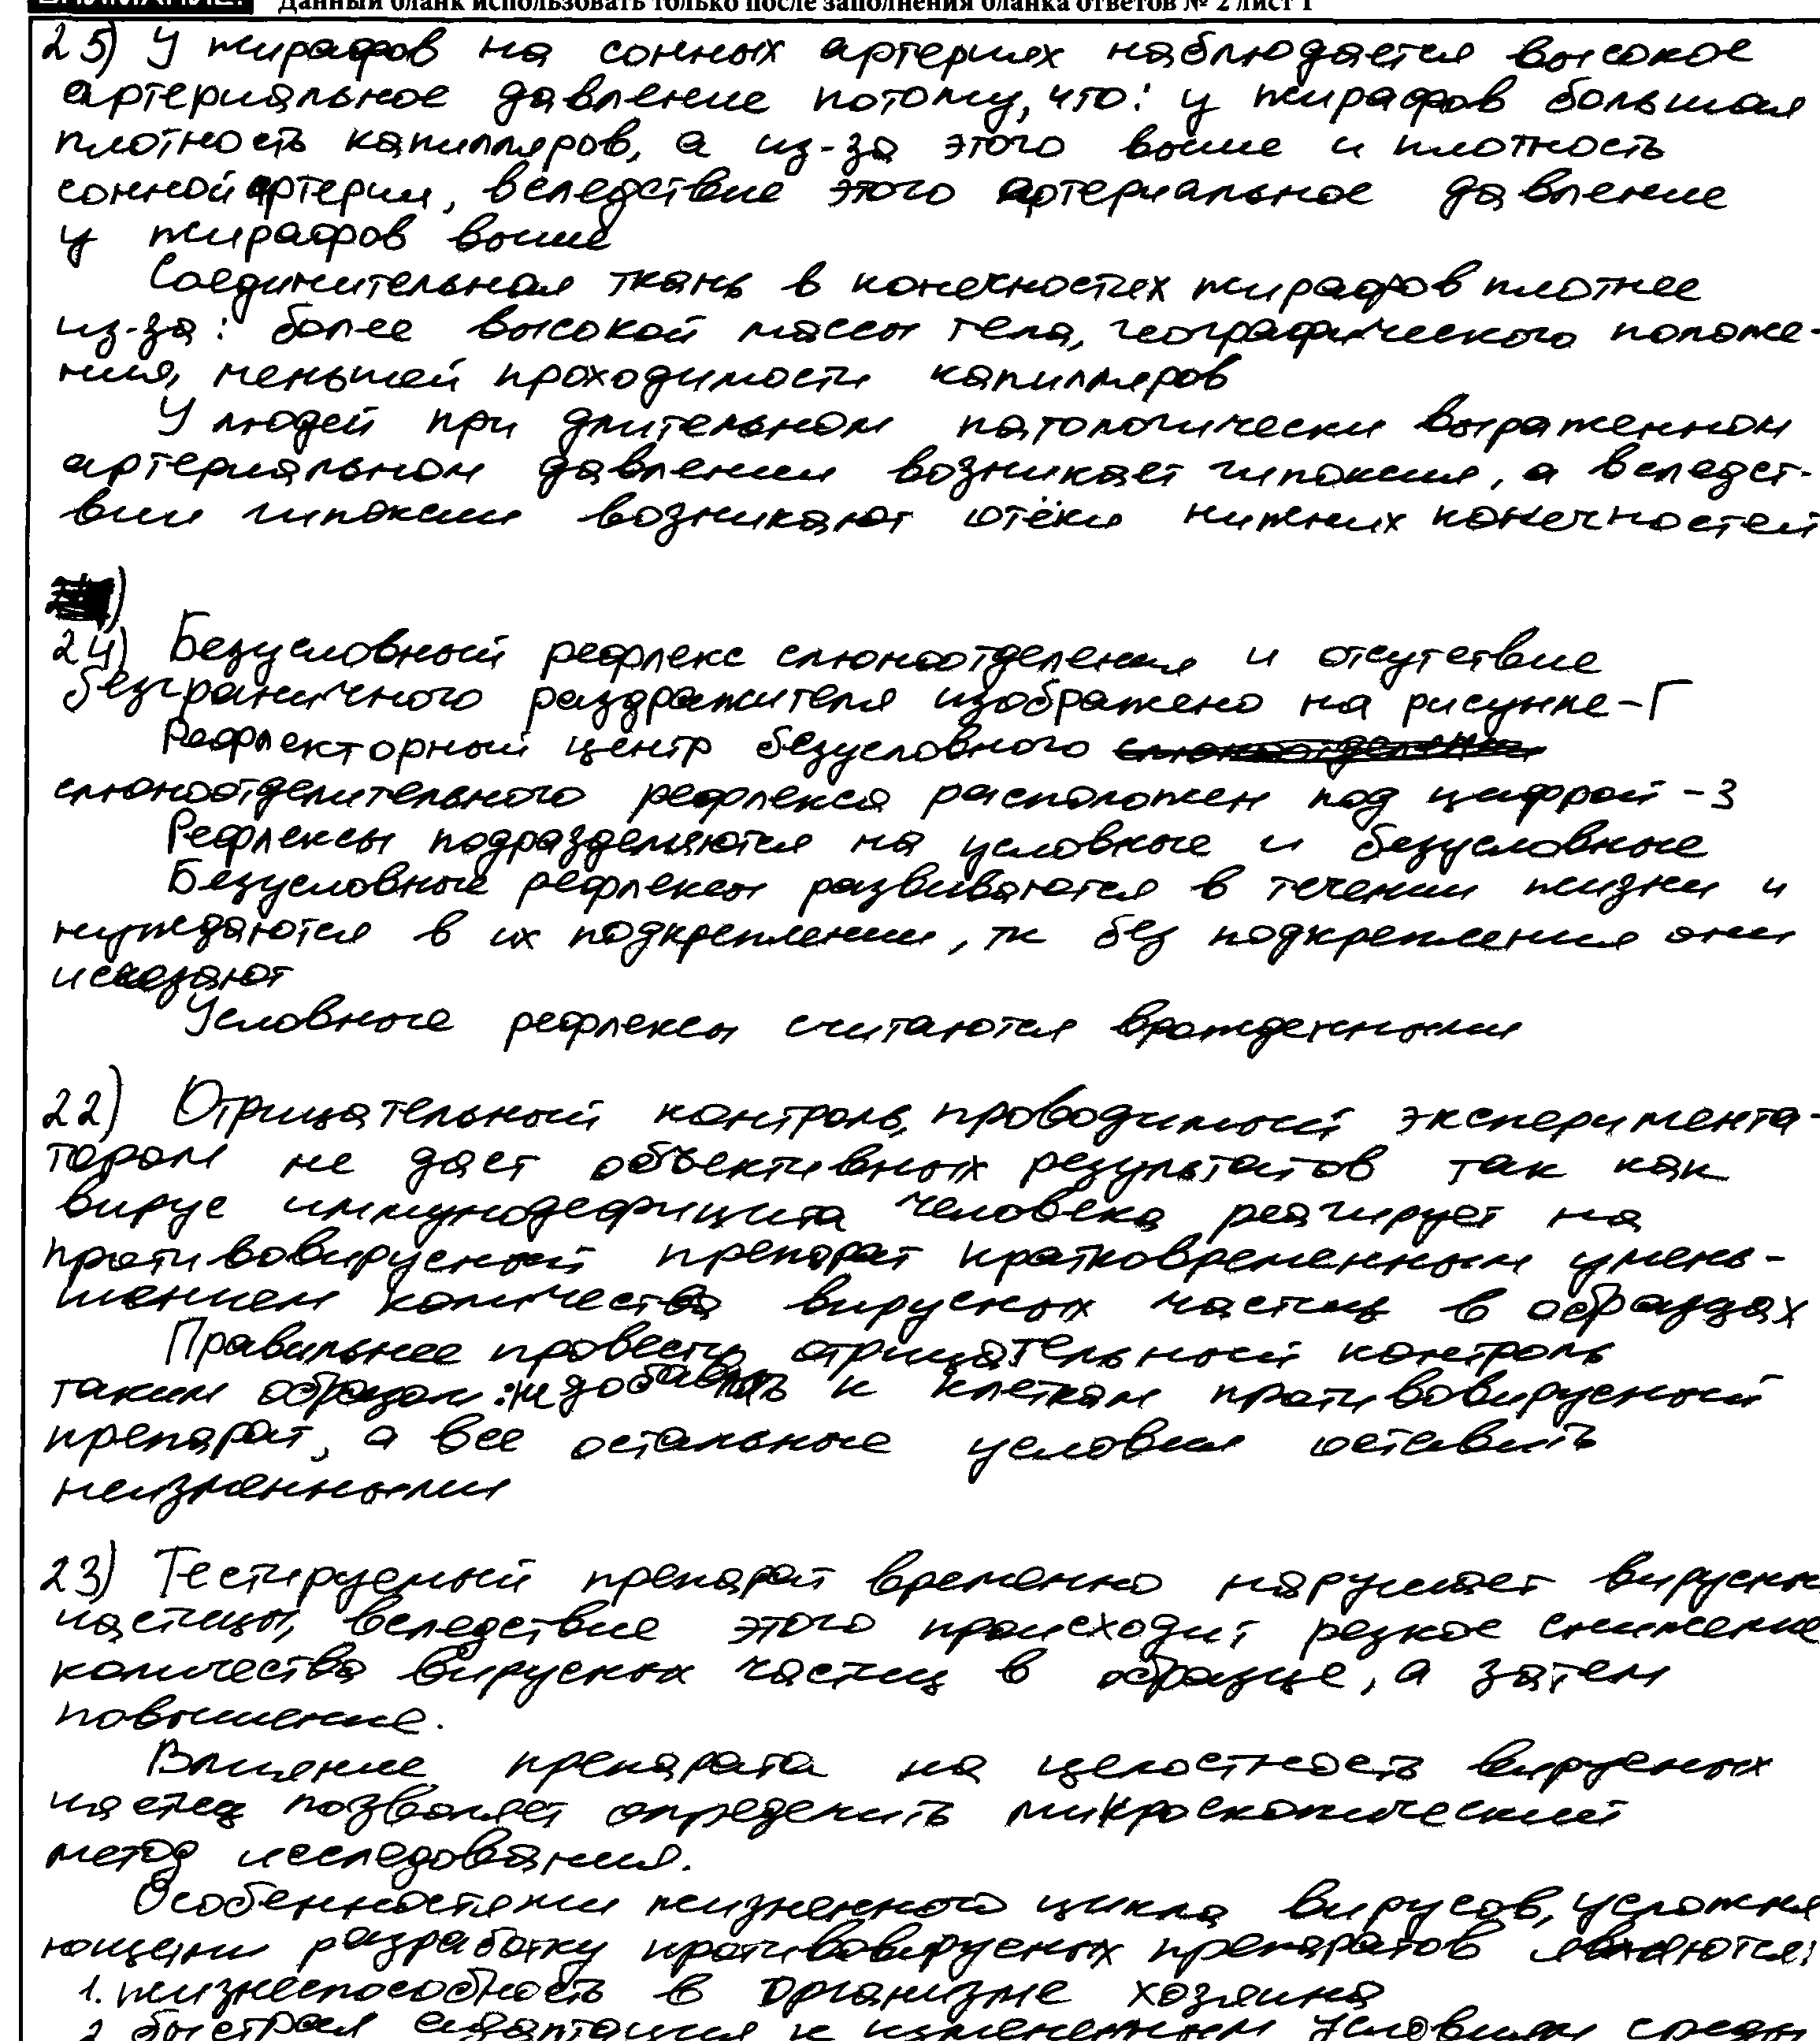 Данный бланк использовать только после заполнения бланка ответов № 2 лист 1
25) У жирафов на сонных артериях наблюдается высокое
артериальное давление потому, что: у жирафов большая
плотность капилляров, а из-за этого выше и плотность
сонной артерии, вследствие этого артериальное давление
у жирафов выше
Соединительная ткань в конечностях жирафов плотнее
из-за: более высокой массы тела, географического положе-
ния, меньшей проходимости капилляров
У людей при длительном патологически выраженном
артериальном давлении возникает гипоксия, а вследст-
вии гипоксии возникают отёки нижних конечностей
24) Безусловный рефлекс слюноотделения и отсутствие
безграничного раздражителя изображено на рисунке-Г
Рефлекторный центр безусловного
слюноотделительного рефлекса расположен под цифрой -3
Рефлексы подразделяются на условные и безусловные
Безусловные рефлексы развиваются в течении жизни и
нуждаются в их подкреплении, тк без подкрепления они
исчезают
Условные рефлексы считаются врожденными
22) Отрицательный контроль, проводимый эксперимента-
тором не дает объективных результатов так как
вирус иммунодефицита человека реагирует на
противовирусный препарат кратковременным умень-
шением количества вирусных частиц в образцах
Правильнее провести отрицательный контроль
таким образом: не добавлять к клеткам противовирусный
препарат, а все остальные условия оставить
неизменными
23) Тестируемый препарат временно нарушает вирусны
частицы, вследствие этого происходит резкое снижение
количества вирусных частиц в образце, а затем
повышение.
Влияние препарата на целостность вирусных
частиц позволяет определить микроскопический
метод исследования.
Особенностями жизненного цикла вирусов, усложня
ющими разработку противовирусных препаратов являются:
1. жизнеспособность в организме хозяина
2. быстрая адаптация к измененным условиям среды